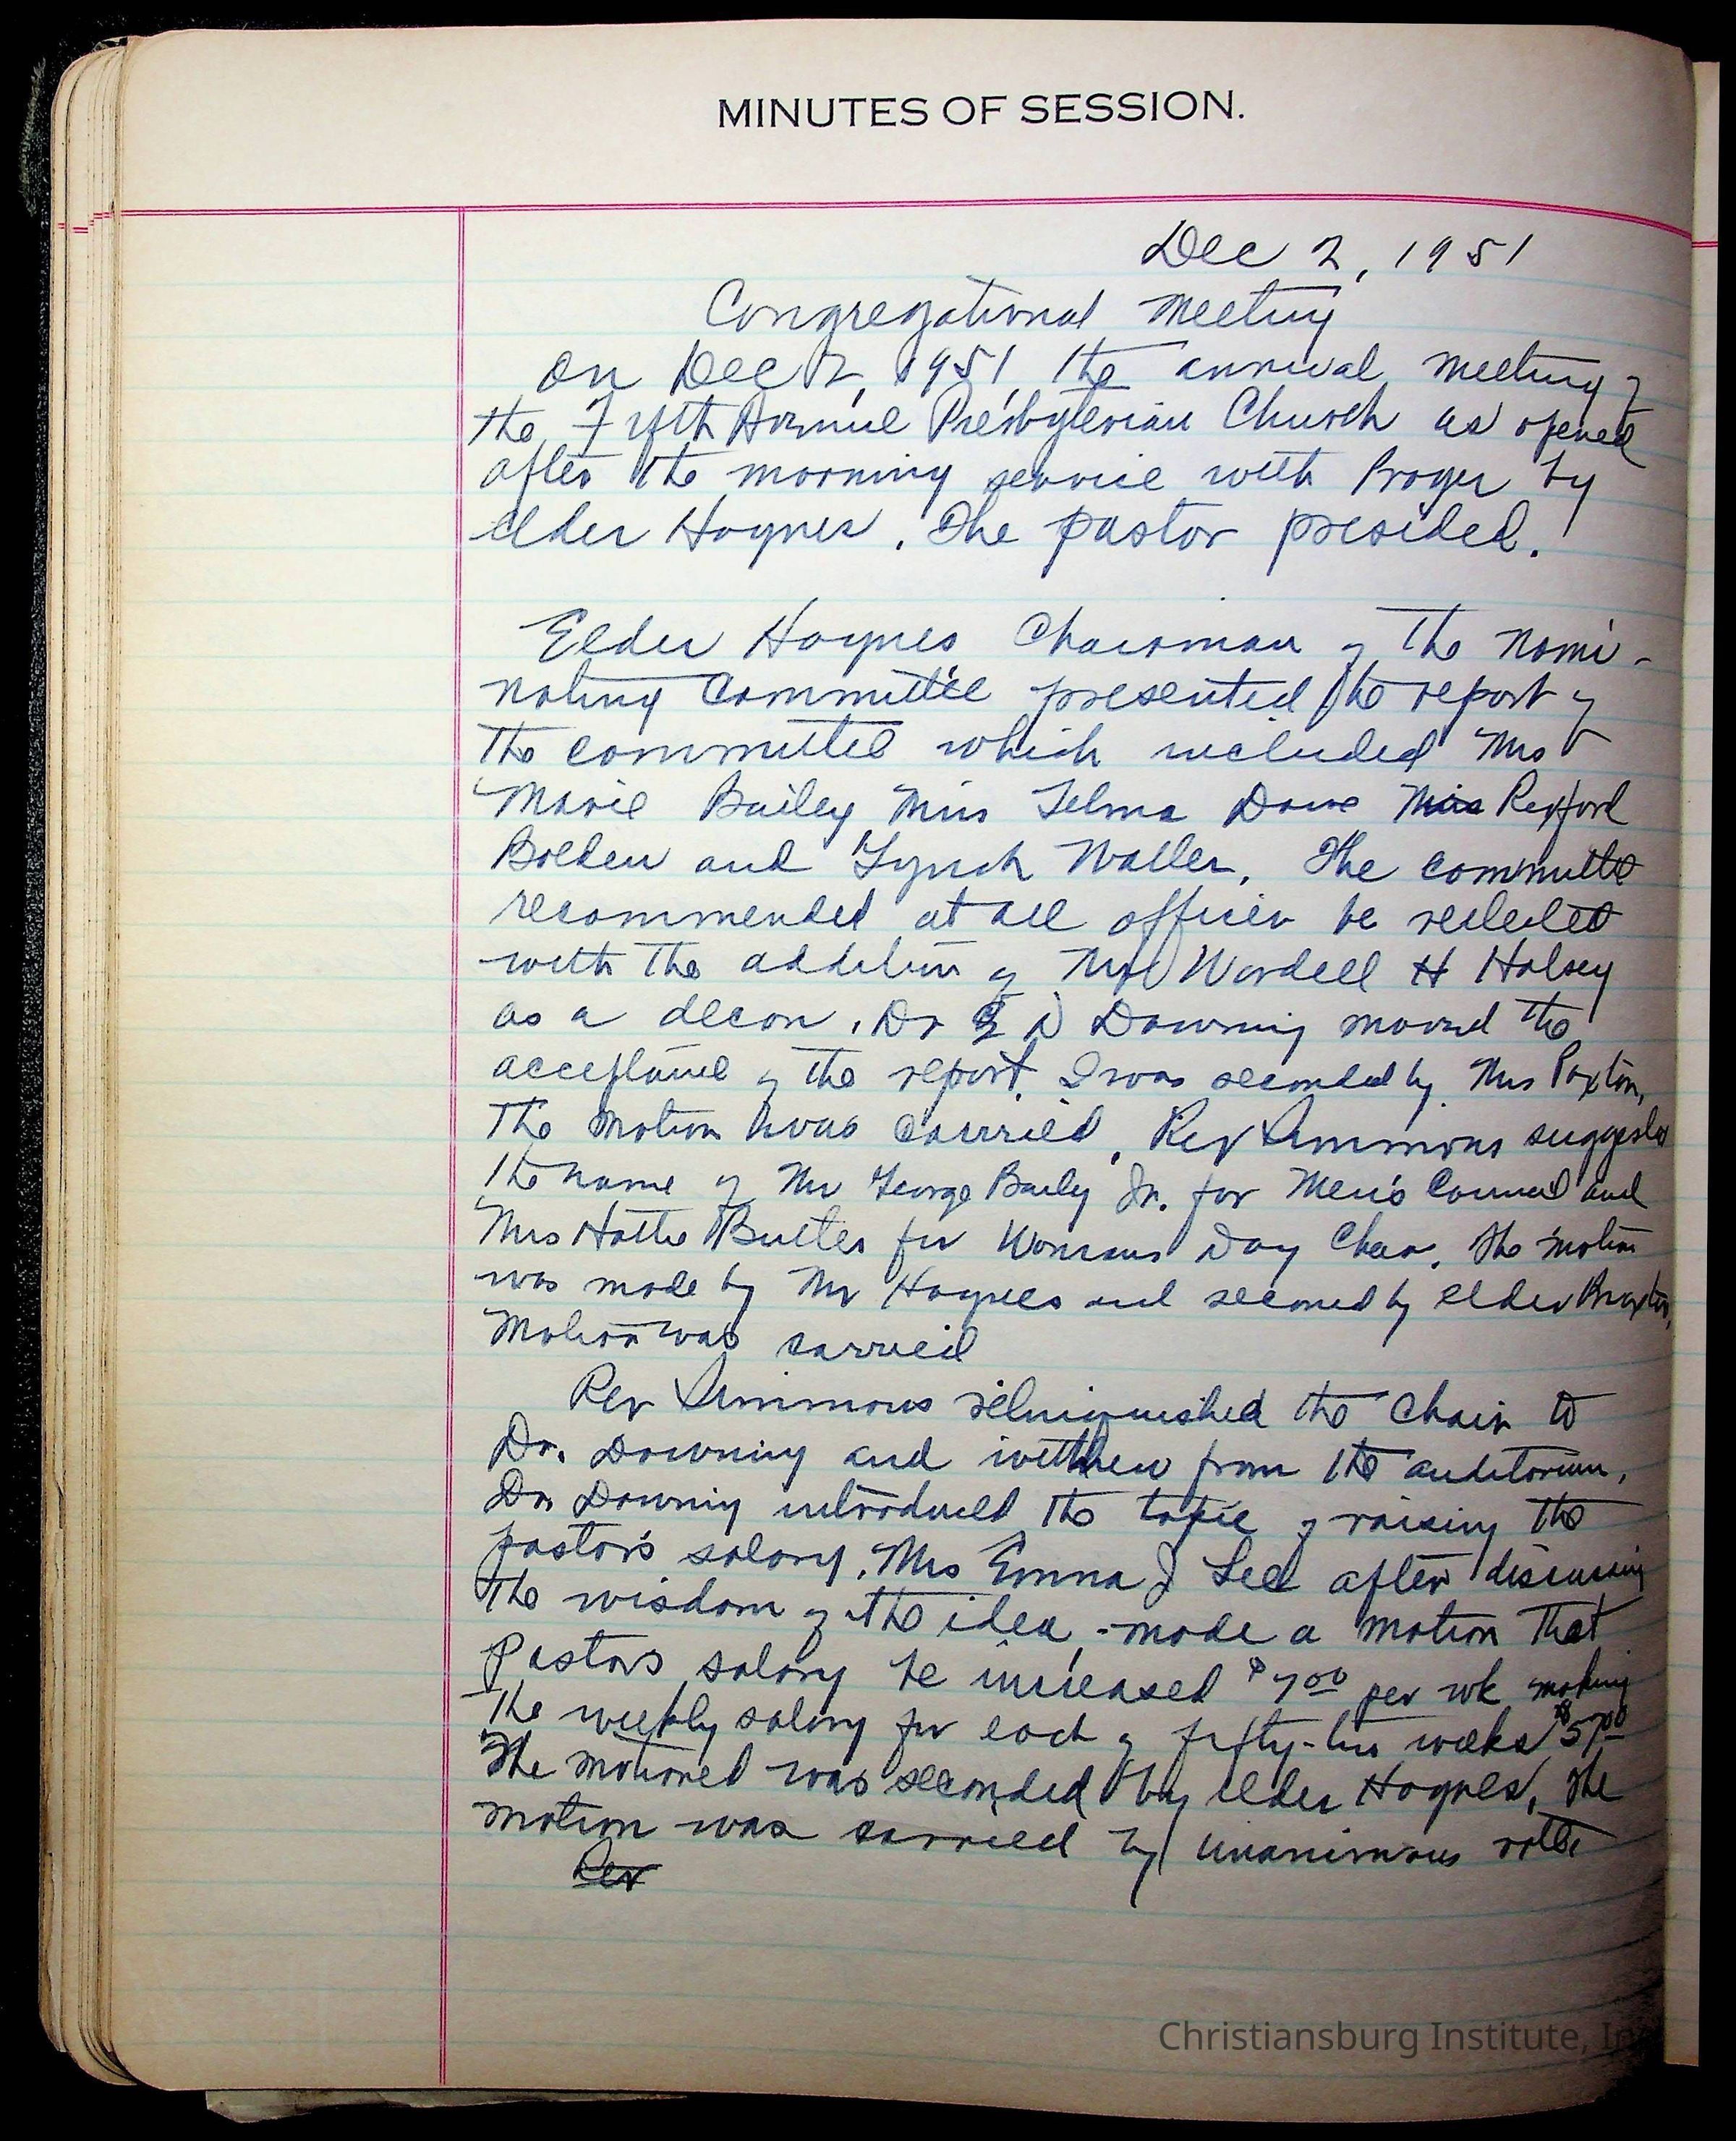 MINUTES OF SESSION.
Dec 2, 1951
Congregational Meeting
On Dec 2, 1951, the annual meeting of
the Fifth Avenue Presbyterian Church as opened
after the morning service with Prayer by
elder Haynes. The pastor presided.
Elder Haynes Chairman of the nomi-
nating Committee presented the report of
the committee which included Mrs
Marie Bailey Miss Selma Miss Rexford
Bolden and Lynch Waller. The committe
recommended at all officer be reelected
with the addition of Wordell H Halsey
as a decon. Dr D Downing moved the
acceptance of the report. I was seconded by Mrs Paxton,
The motion was carried. Rev Simmons suggested
the name of Mr George Baily Jr. for Men's Council and
Mrs Hattie Butler for Womans Day Chair. The motion
was made by Mr Haynes and seconed by elder
Motion was carried
Rev Simmons relinquished the Chair to
Dr. Downing and withdrew from the auditorium.
Dr. Downing introduced the topic of raising the
pastor's salary. Mrs Emma J Lee after discussing
the wisdom of the idea - made a motion that
Pastors salary be increased $7.00 per wk making
the weekly salary for each of fifty-two weeks $57.00
The motioned was seconded by elder Haynes. The
motion was carried by unanimous votte
Rev
Christiansburg Institute, Inc